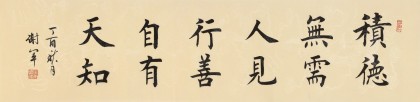 積德
無需
人見
行善
自有
天知
丁酉秋月